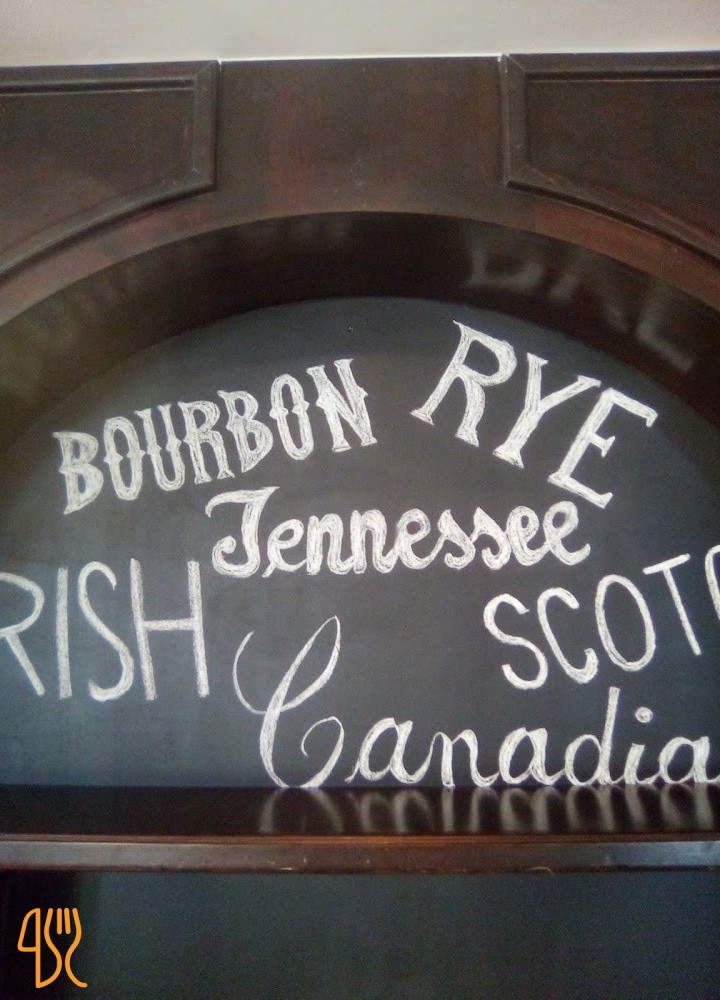 BOURBON RYE
Tennessee
RISH SCOTC
Canadia